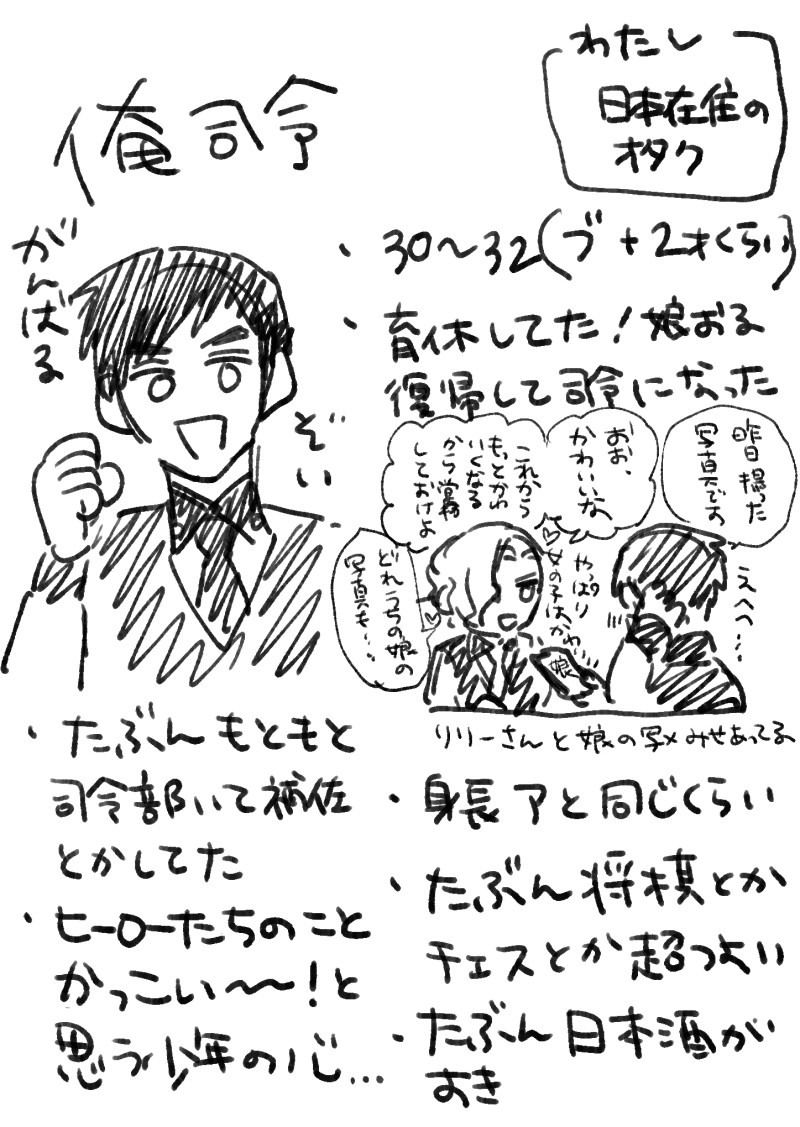 俺司令
わたし
日本在住の
オタク
がんばる
ぞい
・30〜32(ブ+2才くらい)
・育休してた!娘おる
復帰して司令になった
昨日撮った
写真です
おお、
かわいいな
これから
もっとかわ
いくなる
から覚悟
しておけよ
やっぱり
女の子はかわ
どれうちの娘の
写真も…
えへへ…
娘
リリーさんと娘の写メみせあってる
・たぶんもともと
司令部いて補佐
とかしてた
・ヒーローたちのこと
かっこいい〜〜!と
思う少年の心…
・身長アと同じくらい
・たぶん将棋とか
チェスとか超つよい
・たぶん日本酒が
すき